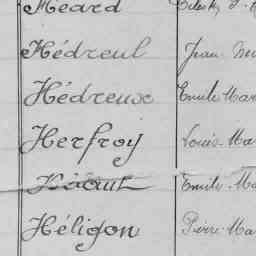 Héard
Hédreul Jean
Hédreux Emile Mar
Herfroy Louis-Ma
Emile-Ma
Héligon Pierre-Ma